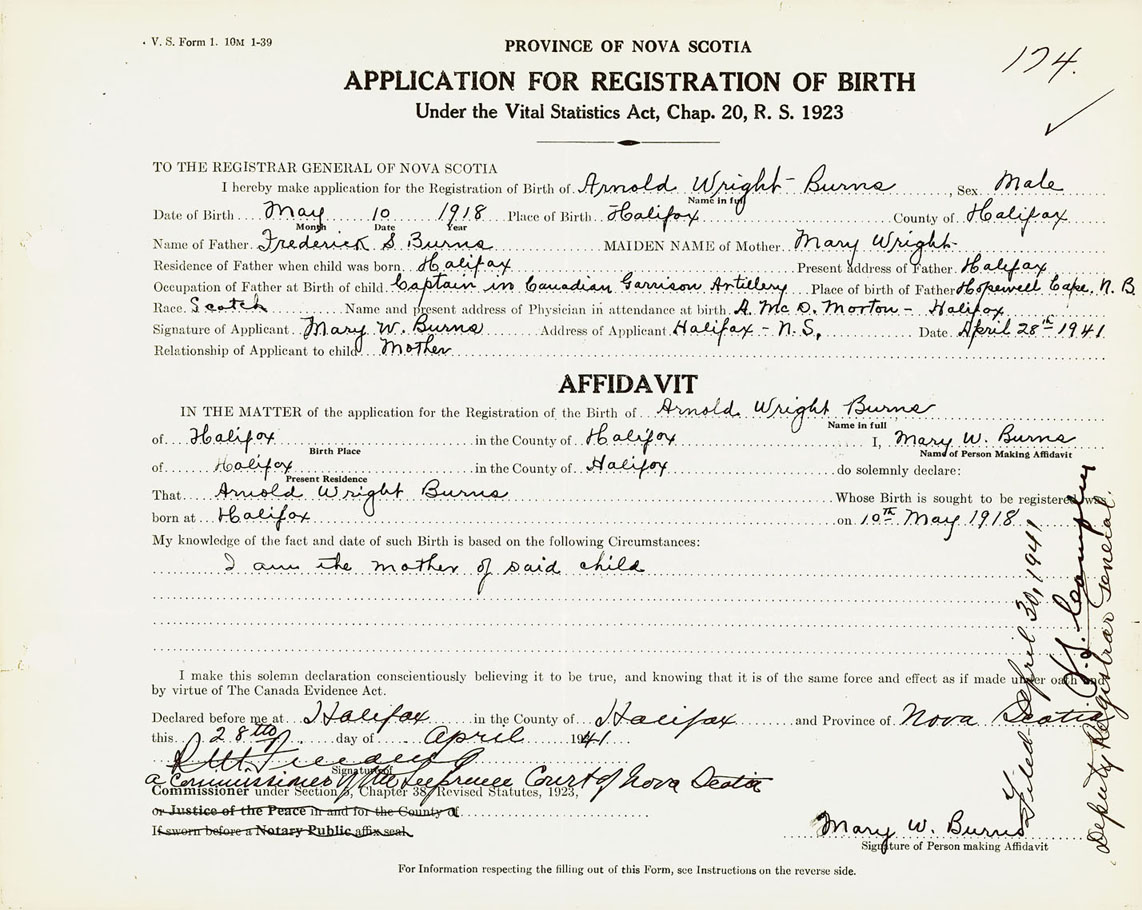 V. S. Form 1. 10M 1-39
PROVINCE OF NOVA SCOTIA
174.
APPLICATION FOR REGISTRATION OF BIRTH
Under the Vital Statistics Act, Chap. 20, R. S. 1923
TO THE REGISTRAR GENERAL OF NOVA SCOTIA
I hereby make application for the Registration of Birth of Arnold Wright Burns, Sex Male
Name in full
Date of Birth May 10 1918 Place of Birth Halifax County of Halifax
Month Date Year
Name of Father Frederick S Burns MAIDEN NAME of Mother Mary Wright
Residence of Father when child was born Halifax Present address of Father Halifax
Occupation of Father at Birth of child Captain in Canadian Garrison Artillery Place of birth of Father Hopewell Cape, N. B
Race Scotch Name and present address of Physician in attendance at birth A. Mc D. Morton - Halifax
Signature of Applicant Mary W. Burns Address of Applicant Halifax - N. S. Date April 28th 1941
Relationship of Applicant to child Mother
AFFIDAVIT
IN THE MATTER of the application for the Registration of the Birth of Arnold Wright Burns
Name in full
of Halifax in the County of Halifax I, Mary W. Burns
Birth Place Name of Person Making Affidavit
of Halifax in the County of Halifax do solemnly declare:
Present Residence
That Arnold Wright Burns Whose Birth is sought to be registered was
born at Halifax on 10th May 1918
My knowledge of the fact and date of such Birth is based on the following Circumstances:
I am the mother of said child
I make this solemn declaration conscientiously believing it to be true, and knowing that it is of the same force and effect as if made under oath and
by virtue of The Canada Evidence Act.
Declared before me at Halifax in the County of Halifax and Province of Nova Scotia
this 28th day of April 1941
Signature of
a Commissioner of the Supreme Court of Nova Scotia
Commissioner under Section 5, Chapter 38, Revised Statutes, 1923,
or Justice of the Peace in and for the County of
If sworn before a Notary Public affix seal.
Mary W. Burns
Signature of Person making Affidavit
For Information respecting the filling out of this Form, see Instructions on the reverse side.
Filed April 30, 1941
Deputy Registrar General.